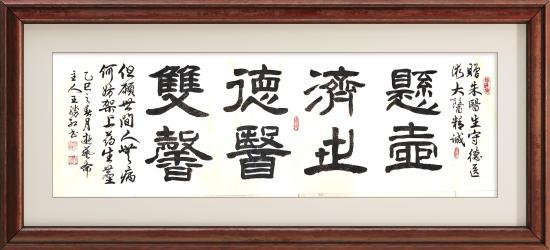 贈朱醫生守德医
大醫精誠
懸壺
濟世
德醫
雙馨
但願世間人無病
何妨架上药生塵
乙巳之春月
主人王